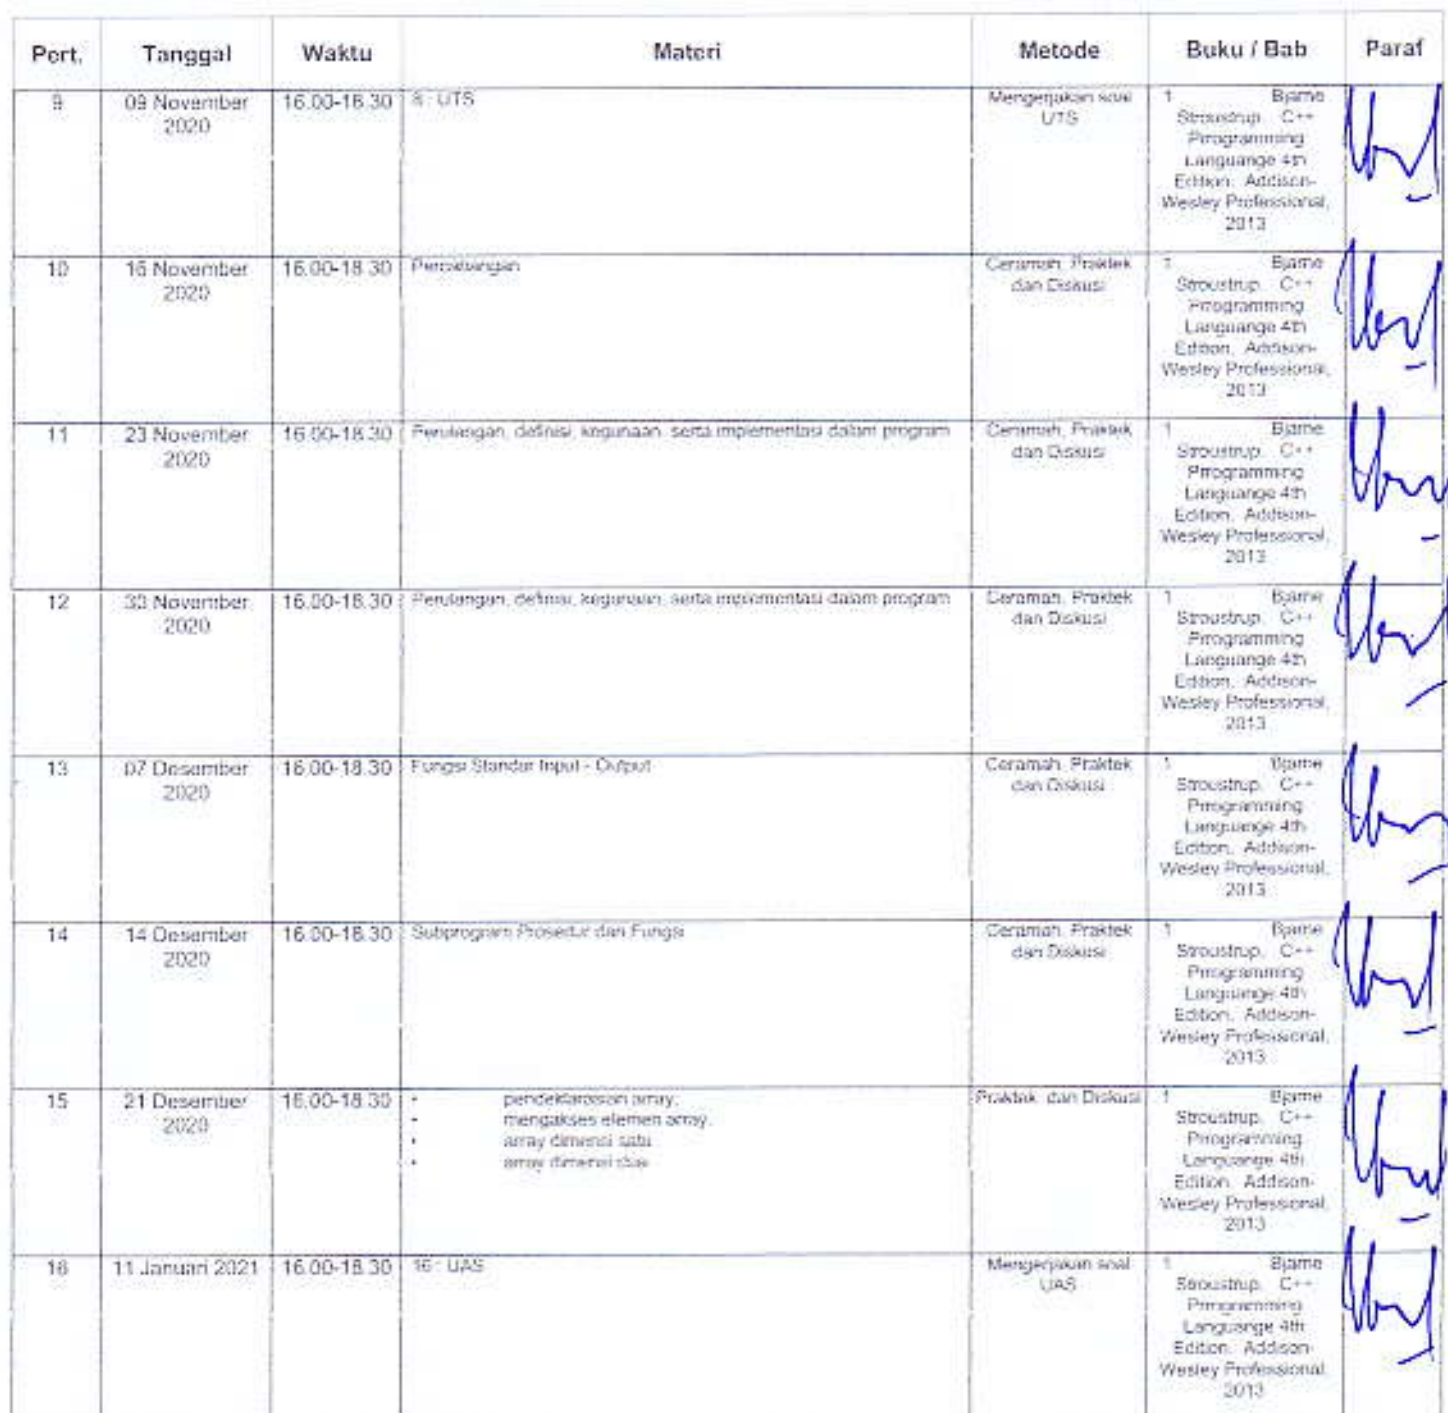 Pert. Tanggal Waktu Materi Metode Buku / Bab Paraf
9 09 November 16.00-18.30 8 : UTS Mengerjakan soal 1 Bjarne
2020 UTS Stroustrup. C++
Prrogramming
Languange 4th
Edition. Addison-
Wesley Professional,
2013
10 16 November 16.00-18.30 Percabangan Ceramah, Praktek 1 Bjarne
2020 dan Diskusi Stroustrup. C++
Prrogramming
Languange 4th
Edition. Addison-
Wesley Professional,
2013
11 23 November 16.00-18.30 Perulangan, definisi, kegunaan, serta implementasi dalam program Ceramah, Praktek 1 Bjarne
2020 dan Diskusi Stroustrup. C++
Prrogramming
Languange 4th
Edition. Addison-
Wesley Professional,
2013
12 30 November 16.00-18.30 Perulangan, definisi, kegunaan, serta implementasi dalam program Ceramah, Praktek 1 Bjarne
2020 dan Diskusi Stroustrup. C++
Prrogramming
Languange 4th
Edition. Addison-
Wesley Professional,
2013
13 07 Desember 16.00-18.30 Fungsi Standar Input - Output Ceramah, Praktek 1 Bjarne
2020 dan Diskusi Stroustrup. C++
Prrogramming
Languange 4th
Edition. Addison-
Wesley Professional,
2013
14 14 Desember 16.00-18.30 Subprogram Prosedur dan Fungsi Ceramah, Praktek 1 Bjarne
2020 dan Diskusi Stroustrup. C++
Prrogramming
Languange 4th
Edition. Addison-
Wesley Professional,
2013
15 21 Desember 16.00-18.30 • pendeklarasian array, Praktek dan Diskusi 1 Bjarne
2020 • mengakses elemen array, Stroustrup. C++
• array dimensi satu Prrogramming
• array dimensi dua Languange 4th
Edition. Addison-
Wesley Professional,
2013
16 11 Januari 2021 16.00-18.30 16 : UAS Mengerjakan soal 1 Bjarne
UAS Stroustrup. C++
Prrogramming
Languange 4th
Edition. Addison-
Wesley Professional,
2013